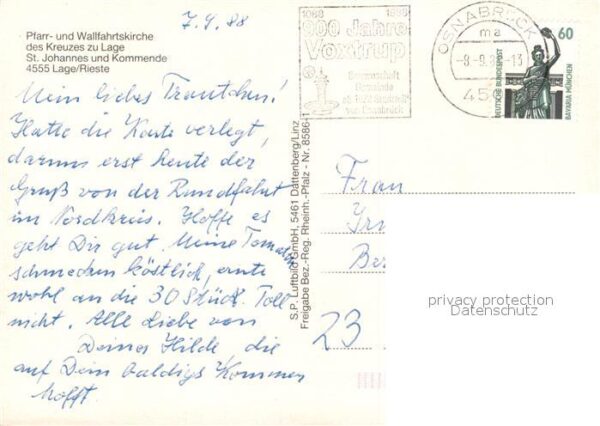 7.9.88
Pfarr- und Wallfahrtskirche
des Kreuzes zu Lage
St. Johannes und Kommende
4555 Lage/Rieste
Mein liebes Trautchen!
Hatte die Karte verlegt,
darum erst heute der
Gruß von der Rundfahrt
im Nordkreis. Hoffe es
geht Dir gut. Meine Tomaten
schmecken köstlich, ernte
wohl an die 30 Stück. Toll
nicht. Alle Liebe von
Deiner Hilde, die
auf Dein baldiges Kommen
hofft.
S.P. Luftbild GmbH, 5461 Dattenberg/Linz
Freigabe Bez.-Reg. Rheinh.-Pfalz - Nr. 8586-1
1088 1988
900 Jahre
Voxtrup
OSNABRÜCK
ma
-8.-9.8
-13
45
60
DEUTSCHE BUNDESPOST
BAVARIA MÜNCHEN
Frau
23
privacy protection
Datenschutz